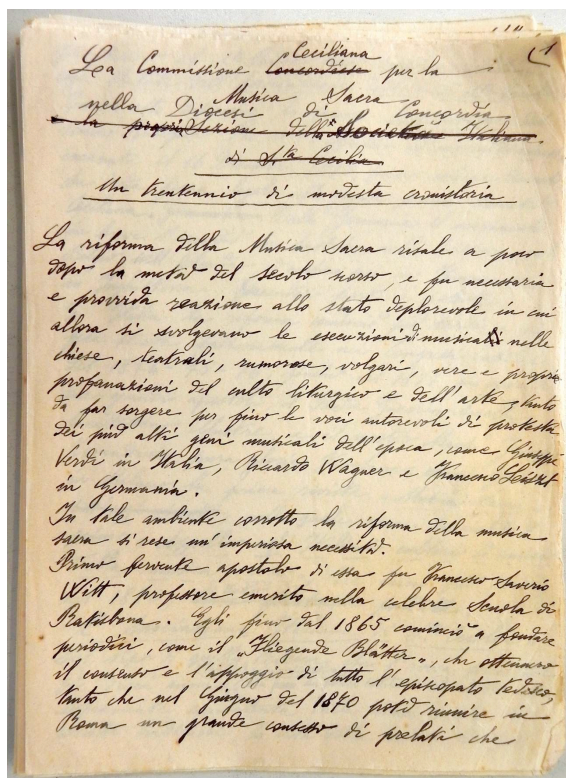 1
Ceciliana
La Commissione Concordiese per la
Musica Sacra
nella Diocesi di Concordia
la propria Sezione della Società Italiana
di S.ta Cecilia
Un trentennio di modesta cronistoria
La riforma della Musica Sacra risale a poco
dopo la metà del secolo scorso, e fu necessaria
e provvida reazione allo stato deplorevole in cui
allora si svolgevano le esecuzioni di musica nelle
chiese, teatrali, rumorose, volgari, vere e proprie
profanazioni del culto liturgico e dell'arte, tanto
da far sorgere per fino le voci autorevoli di protesta
dei più alti geni musicali dell'epoca, come Giuseppe
Verdi in Italia, Riccardo Wagner e Francesco Leiszt
in Germania.
In tale ambiente corrotto la riforma della musica
sacra si rese un'imperiosa necessità.
Primo fervente apostolo di essa fu Francesco Saverio
Witt, professore emerito nella celebre Scuola di
Ratisbona. Egli fino dal 1865 cominciò a fondare
periodici, come il „Fliegende Blätter", che ottennero
il consenso e l'appoggio di tutto l'episcopato tedesco,
tanto che nel Giugno del 1870 potè riunire in
Roma un grande consesso di prelati che